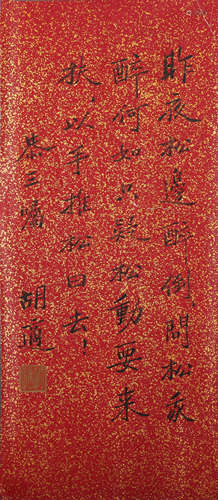 昨夜松邊醉倒,問松我
醉何如只疑松動要来
扶,以手推松曰去!
恭王嘱
胡適